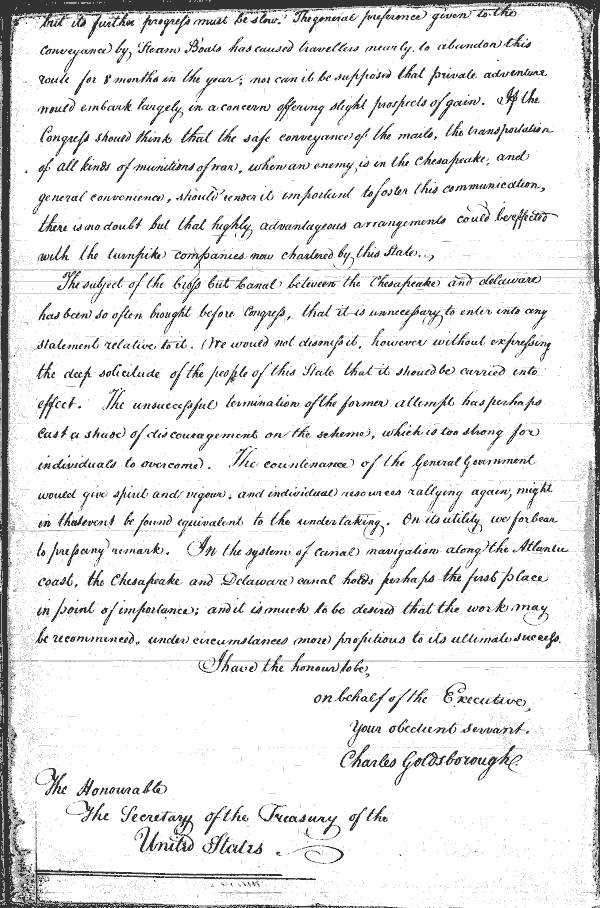 but its further progress must be slow. The general preference given to the
conveyance by Steam Boats has caused travellers nearly to abandon this
route for 8 months in the year; nor can it be supposed that private adventure
would embark largely in a concern offering slight prospects of gain. If the
Congress should think that the safe conveyance of the mails, the transportation
of all kinds of munitions of war, when an enemy is in the Chesapeake, and
general convenience, should render it important to foster this communication,
there is no doubt but that highly advantageous arrangements could be effected
with the turnpike companies now chartered by this State.
The subject of the Cross Cut Canal between the Chesapeake and delaware
has been so often brought before Congress, that it is unnecessary to enter into any
statement relative to it. We would not dismiss it, however without expressing
the deep solicitude of the people of this State that it should be carried into
effect. The unsuccessful termination of the former attempt has perhaps
cast a shade of discouragement on the scheme, which is too strong for
individuals to overcome. The countenance of the General Government
would give spirit and vigour; and individual resources rallying again, might
in that event be found equivalent to the undertaking. On its utility we forbear
to press any remark. In the system of canal navigation along the Atlantic
coast, the Chesapeake and Delaware canal holds perhaps the first place
in point of importance; and it is much to be desired that the work may
be recommenced, under circumstances more propitious to its ultimate success.
I have the honour to be,
on behalf of the Executive,
Your obedient servant.
Charles Goldsborough
The Honourable
The Secretary of the Treasury of the
United States